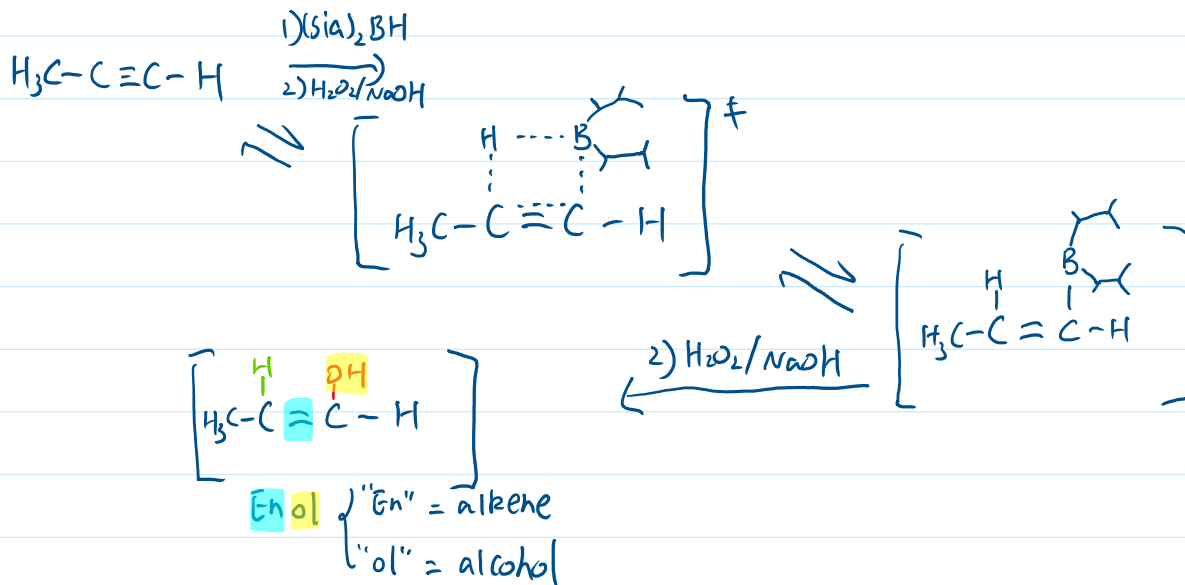 1)(Sia)₂BH
H₃C-C≡C-H
2)H₂O₂/NaOH
H ---- B ‡
H₃C-C≡C-H
B
H
H₃C-C=C-H
2) H₂O₂/NaOH
H OH
H₃C-C=C-H
Enol { "En" = alkene
"ol" = alcohol